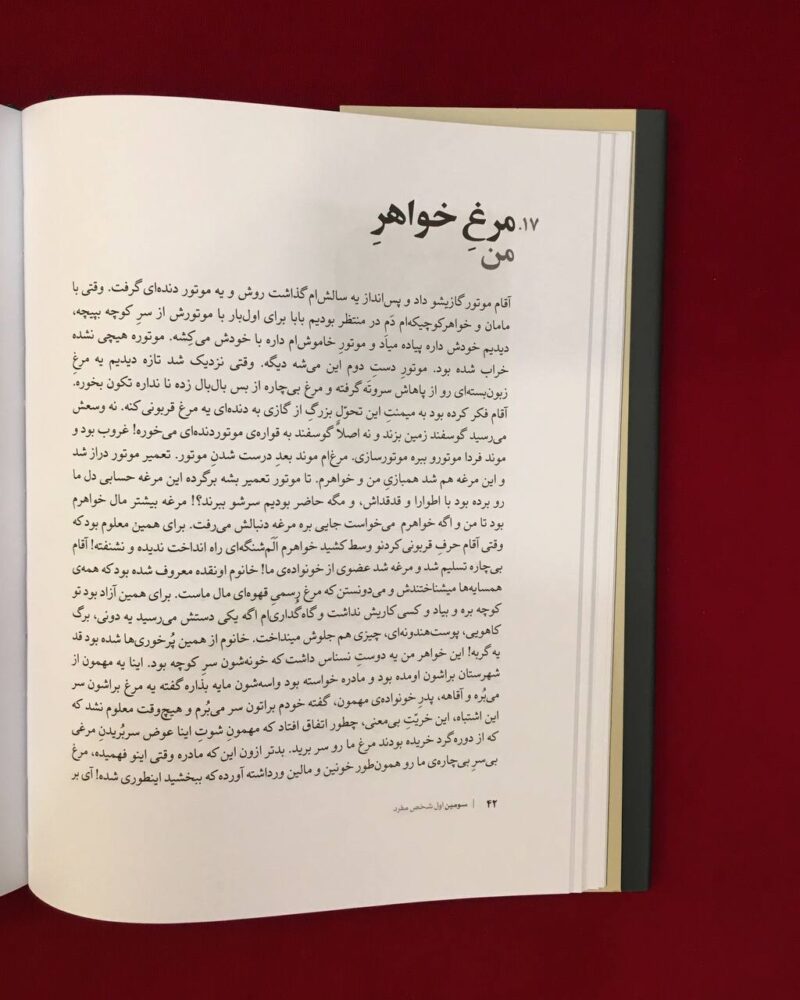 ۱۷. مرغِ خواهرِ
من
آقام موتور گازیشو داد و پس‌انداز یه سالش‌ام گذاشت روش و یه موتور دنده‌ای گرفت. وقتی با
مامان و خواهرکوچیکه‌ام دَمِ در منتظر بودیم بابا برای اول‌بار با موتورش از سرِ کوچه بپیچه،
دیدیم خودش داره پیاده میاد و موتورِ خاموش‌ام داره با خودش می‌کِشه. موتوره هیچی نشده
خراب شده بود. موتورِ دستِ دوم این می‌شه دیگه. وقتی نزدیک شد تازه دیدیم یه مرغِ
زبون‌بسته‌ای رو از پاهاش سروته گرفته و مرغ بی‌چاره از بس بال‌بال زده نا نداره تکون بخوره.
آقام فکر کرده بود به میمنتِ این تحوّلِ بزرگِ از گازی به دنده‌ای یه مرغ قربونی کنه. نه وسعش
می‌رسید گوسفند زمین بزند و نه اصلاً گوسفند به قواره‌ی موتوردنده‌ای می‌خوره! غروب بود و
موند فردا موتورو ببره موتورسازی. مرغ‌ام موند بعدِ درست شدنِ موتور. تعمیر موتور دراز شد
و این مرغه هم شد همبازیِ من و خواهرم. تا موتور تعمیر بشه برگرده این مرغه حسابی دل ما
رو برده بود با اطوارا و قدقداش، و مگه حاضر بودیم سرشو ببرند؟! مرغه بیشتر مال خواهرم
بود تا من و اگه خواهرم می‌خواست جایی بره مرغه دنبالش می‌رفت. برای همین معلوم بود که
وقتی آقام حرفِ قربونی کردنو وسط کشید خواهرم اَلَم‌شنگه‌ای راه انداخت ندیده و نشنفته! آقام
بی‌چاره تسلیم شد و مرغه شد عضوی از خونواده‌ی ما! خانوم اونقده معروف شده بود که همه‌ی
همسایه‌ها میشناختندش و می‌دونستن که مرغ رسمیِ قهوه‌ای مال ماست. برای همین آزاد بود تو
کوچه بره و بیاد و کسی کاریش نداشت و گاه‌گداری‌ام اگه یکی دستش می‌رسید یه دونی، برگ
کاهویی، پوست‌هندونه‌ای، چیزی هم جلوش مینداخت. خانوم از همین پُرخوری‌ها شده بود قد
یه گربه! این خواهر من یه دوستِ نسناس داشت که خونه‌شون سرِ کوچه بود. اینا یه مهمون از
شهرستان براشون اومده بود و مادره خواسته بود واسه‌شون مایه بذاره گفته یه مرغ براشون سر
می‌بُره و آقاهه، پدرِ خونواده‌ی مهمون، گفته خودم براتون سر می‌بُرم و هیچ‌وقت معلوم نشد که
این اشتباه، این خریّتِ بی‌معنی، چطور اتفاق افتاد که مهمونِ شوتِ اینا عوض سربُریدنِ مرغی
که از دوره‌گرد خریده بودند مرغ ما رو سر برید. بدتر ازون این که مادره وقتی اینو فهمیده، مرغ
بی‌سرِ بی‌چاره‌ی ما رو همون‌طور خونین و مالین ورداشته آورده که ببخشید اینطوری شده! آی بر
۴۲ | سومین اول شخص مفرد